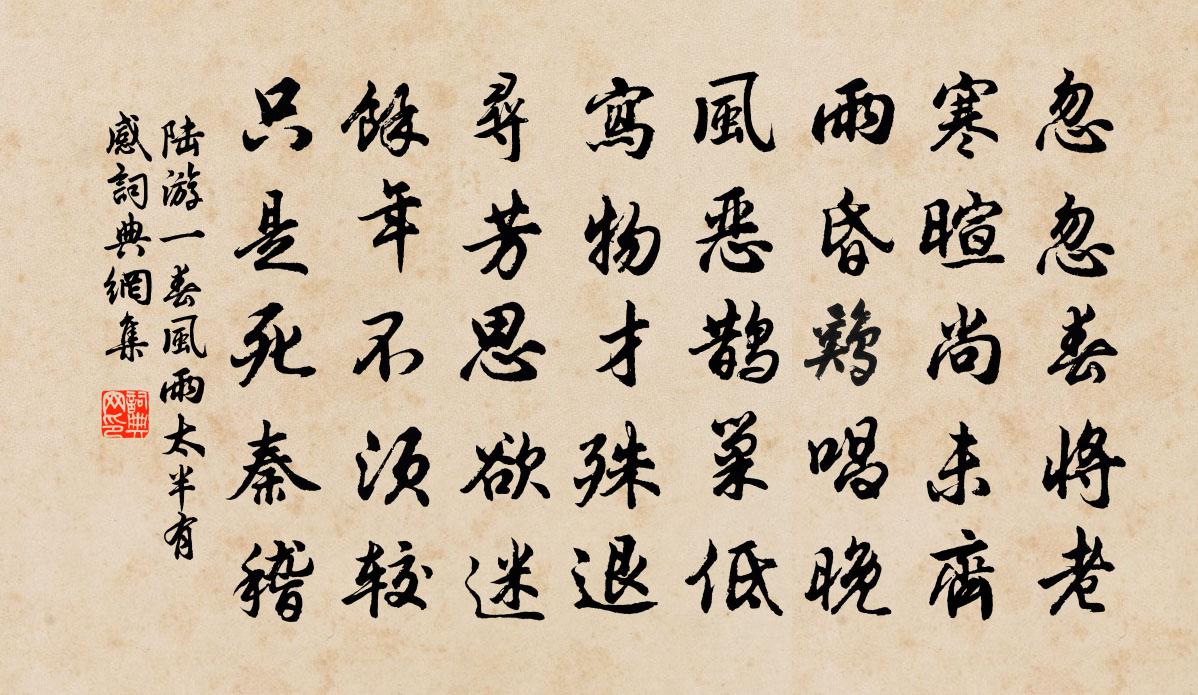 忽忽春將老
寒暄尚未齊
雨昏鷄唱晚
風惡鵲巢低
寫物才殊退
尋芳思欲迷
餘年不須較
只是死秦稽
陆游一春風雨太半有
感詞典網集
詞典
网印